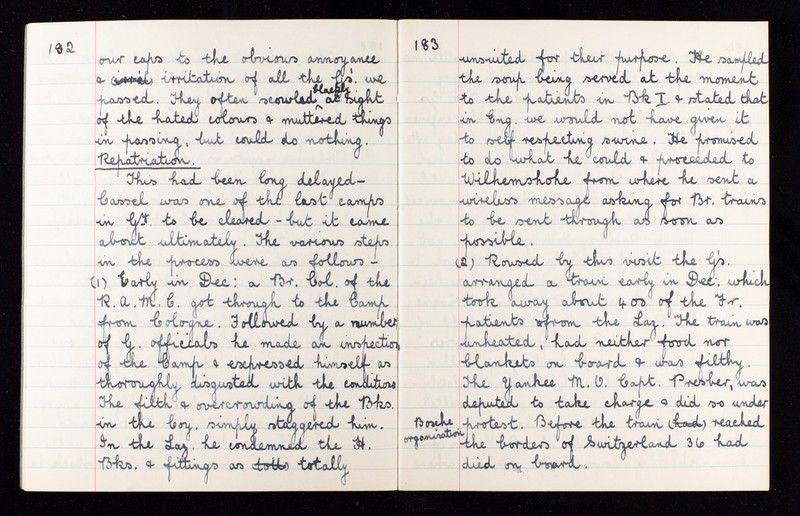 182
our caps to the obvious annoyance
& irritation of all the Gs. we
passed. They often scowled blackly at sight
of the hated colours & muttered things
in passing, but could do nothing.
Repatriation.
This had been long delayed -
Cassel was one of the last camps
in GY. to be cleared - but it came
about ultimately. The various steps
in the process were as follows -
(1) Early in Dec: a Br. Col. of the
R.A.M.C. got through to the Camp
from Cologne. Followed by a number
of G. officials he made an inspection
of the Camp & expressed himself as
thoroughly disgusted with the conditions
The filth & overcrowding of the Bks.
in the Coy. simply staggered him.
In the Laz. he condemned the H.
Bks. & fittings as totally
183
unsuited for their purpose. He sampled
the soup being served at the moment
to the patients in Bk I & stated that
in Eng. we would not have given it
to self respecting swine. He promised
to do what he could & proceeded to
Wilhemshohe from where he sent a
wireless message asking for Br. trains
to be sent through as soon as
possible.
(2) Roused by this visit the Gs.
arranged a train early in Dec. which
took away about 400 of the Fr.
patients from the Laz. The train was
unheated, had neither food nor
blankets on board & was filthy.
The Yankee M.O. Capt. Presber, was
deputed to take charge & did so under
Bosche organisation
protest. Before the train (had) reached
the borders of Switzerland 36 had
died on board.